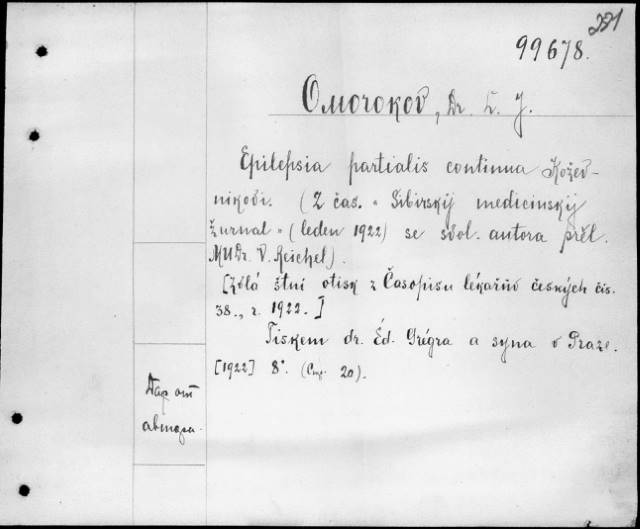 221
99678.
Omorokov, Dr. L. J.
Epilepsia partialis continua Kožev-
nikovi. (Z čas. „Sibirskij medicinskij
žurnal" (leden 1922) se svol. autora přel.
MUDr. V. Reichel).
[Zvláštní otisk z Časopisu lékařův českých čís.
38., r. 1922.]
Tiskem dr. Ed. Grégra a syna v Praze.
[1922] 8°. (Стр. 20).
Дар от
автора.